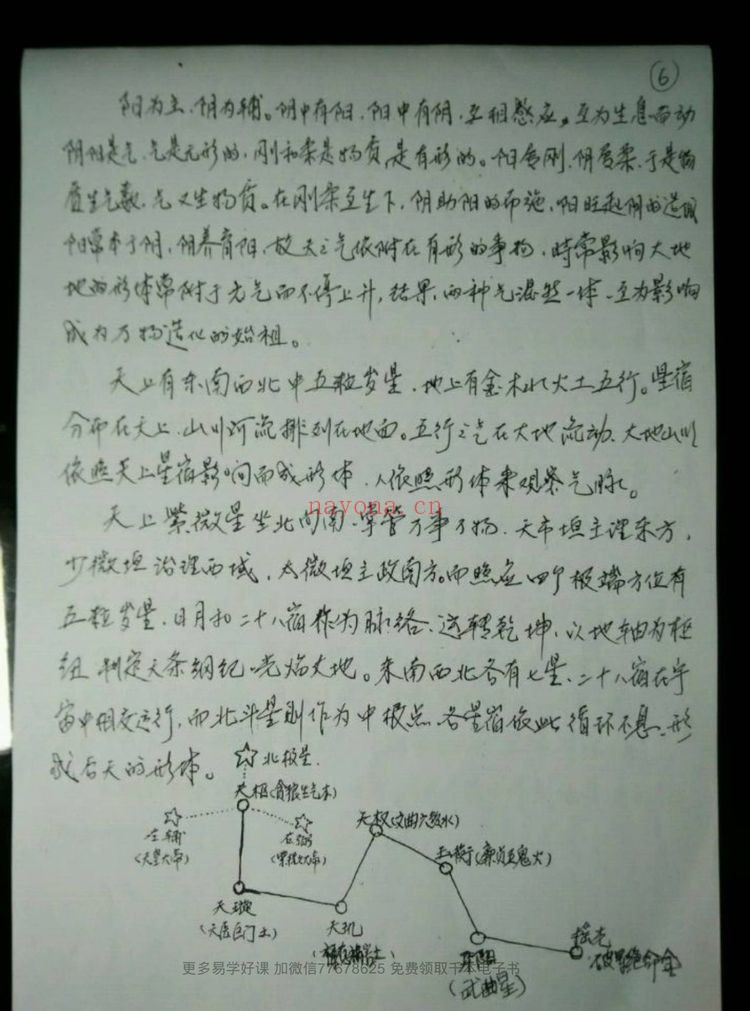 ⑥
阳为主、阴为辅。阴中有阳，阳中有阴，互相感应，互为生息而动
阴阳是气，气是无形的，刚和柔是物质，是有形的。阳质刚，阴质柔，于是物
质生气数，气又生物质。在刚柔互生下，阴助阳的布施，阳旺起阴的造成
阳常本于阴，阴养育阳，故天之气依附在有形的事物，時常影响大地
地的形体常附于元气而不停上升，结果，两种气混然一体，互为影响
成为万物造化的始祖。
天上有东南西北中五粒岁星，地上有金木水火土五行。星宿
分布在天上，山川河流排列在地面。五行之气在大地流动，大地山川
依照天上星宿影响而成形体，人依照形体来观察气脉。
天上紫微星坐北向南，掌管万事万物，天市垣主理东方，
少微垣治理西域，太微垣主政南方。而照应四个极端方位有
五粒岁星，日月和二十八宿称为脉络，运转乾坤，以地轴为枢
纽，制定天条纲纪，光焰大地。东南西北各有七星，二十八宿在宇
宙中相交运行，而北斗星则作为中极点，各星宿依此循环不息，形
成后天的形体。
北极星
天枢(贪狼生气木)
左辅
(天皇大帝)
右弼
(紫微大帝)
天权(文曲六煞水)
玉衡(廉贞五鬼火)
天璇
(天医巨门土)
天玑
开阳
(武曲星)
摇光
破军绝命金
nayona.cn
更多易学好课 加微信77678625 免费领取千本电子书